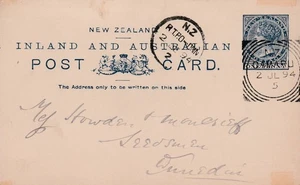 NEW ZEALAND
INLAND AND AUSTRALIAN
POST CARD.
The Address only to be written on this side
N.Z
2 JL 94
5
Howden & Moncrieff
Seedsmen
Dunedin